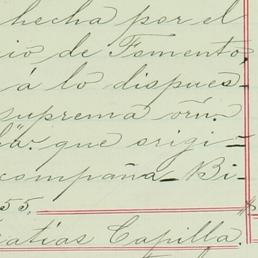 hecha por el
io de Fomento,
á lo dispues-
suprema orn.
la". que origi-
compaña_ Bi-
55.
atías Capilla.